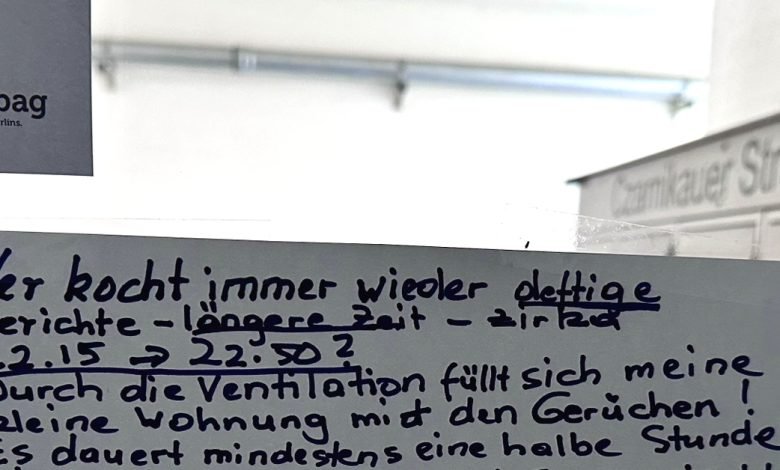 bag
rlins.
Czarnikauer Str
er kocht immer wieder deftige
erichte - längere Zeit - zirka
2.15 → 22.50?
Durch die Ventilation füllt sich meine
kleine Wohnung mit den Gerüchen!
Es dauert mindestens eine halbe Stunde